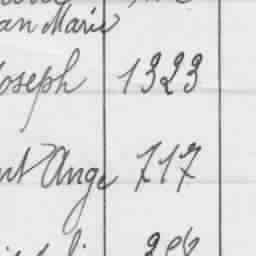 an Marie
Joseph 1323
nt Ange 717